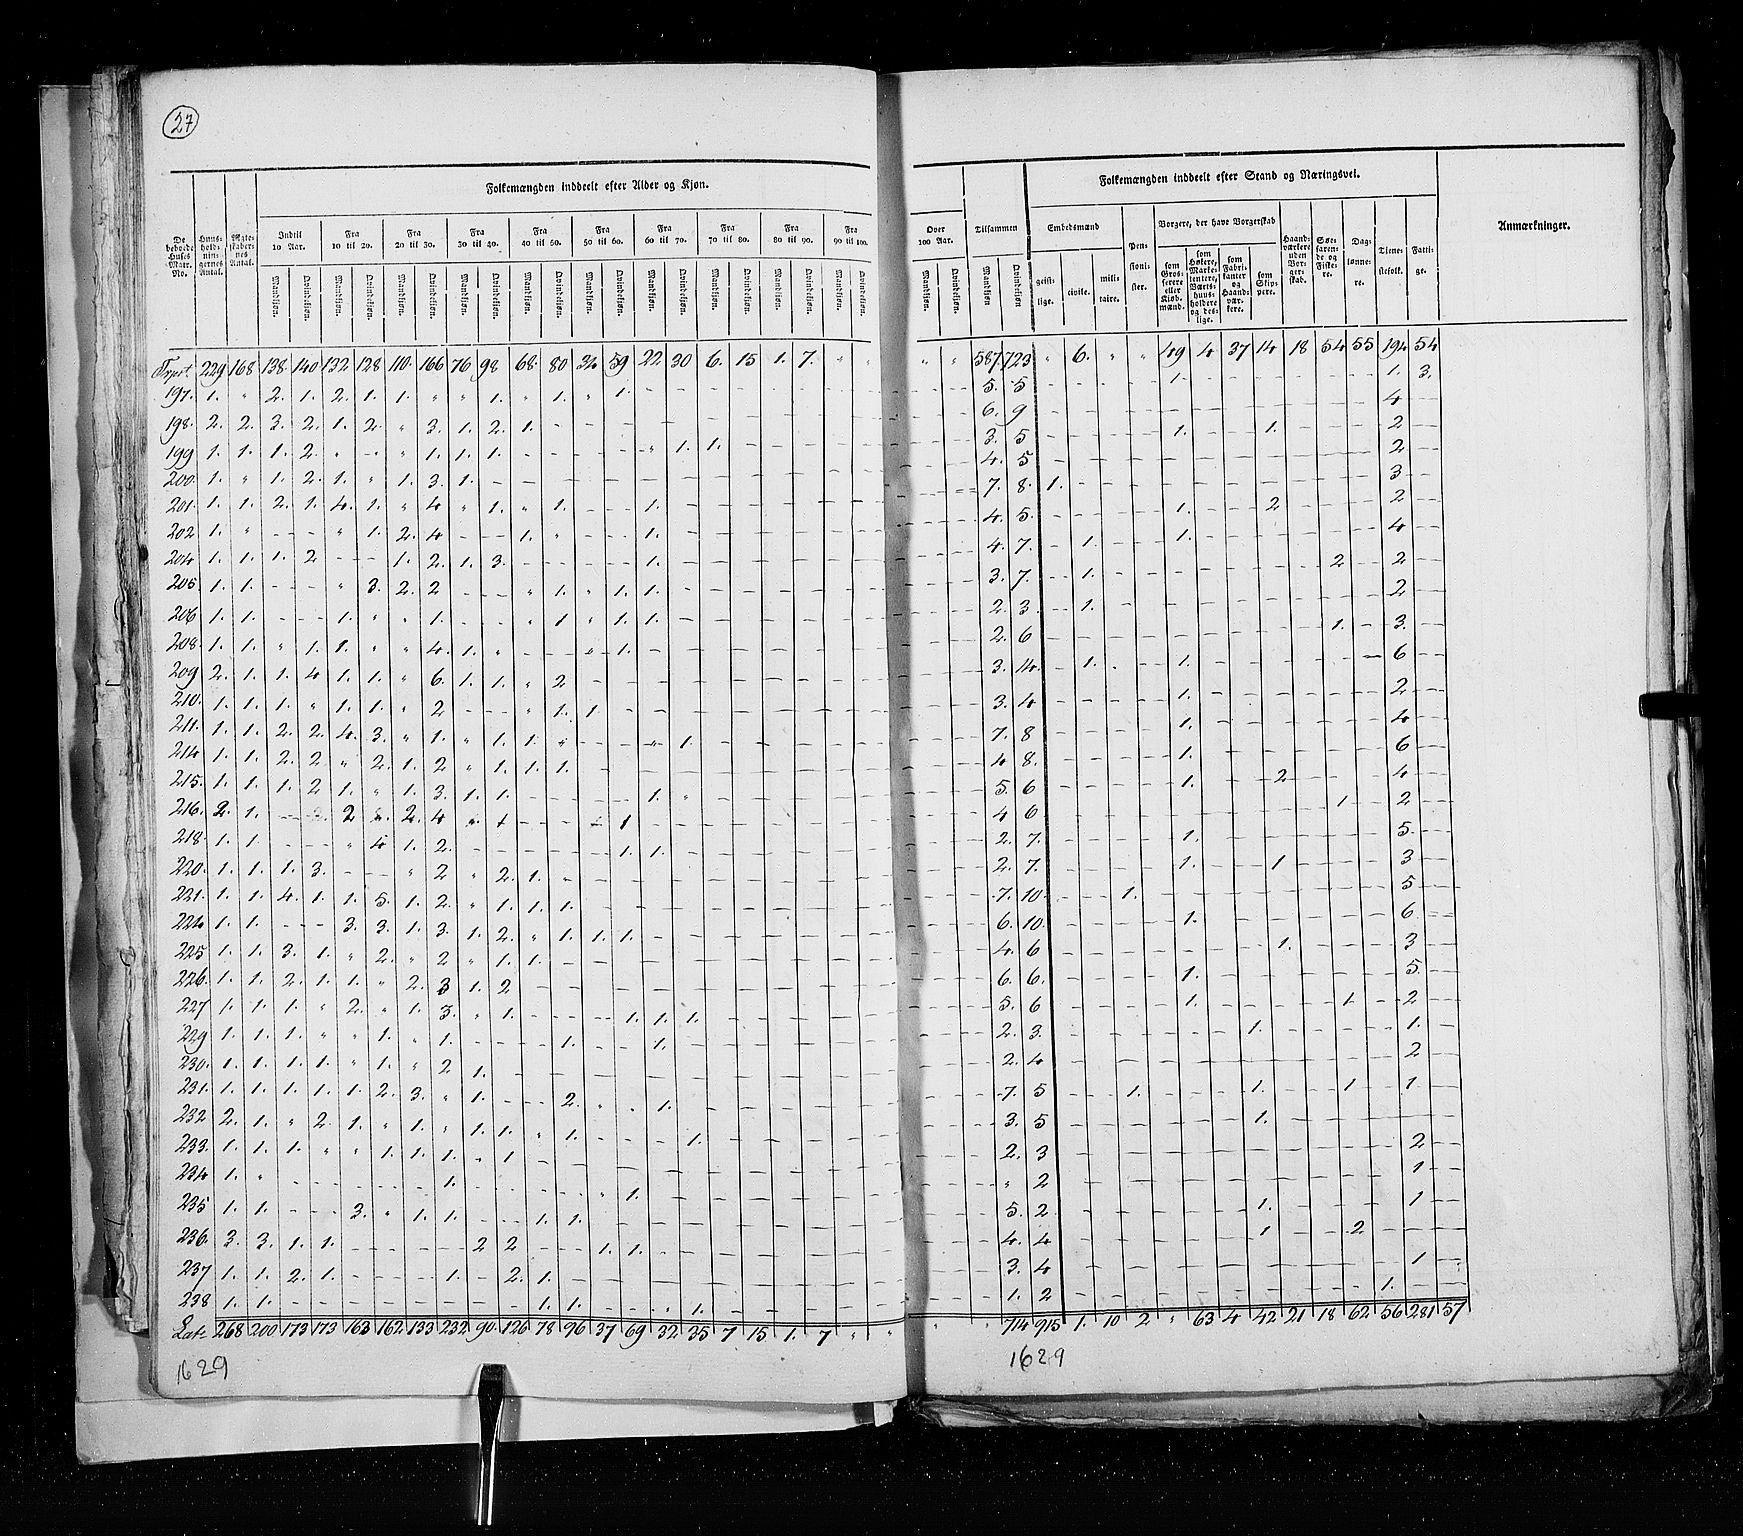 27
Folkemængden inddeelt efter Alder og Kjøn.
Folkemængden inddeelt efter Stand og Næringsvei.
Anmærkninger.
De beboede Huses Matr. No.
Huus-hold-nin-gernes Antal.
Ægte-skaber-nes Antal.
Indtil 10 Aar.
Fra 10 til 20.
Fra 20 til 30.
Fra 30 til 40.
Fra 40 til 50.
Fra 50 til 60.
Fra 60 til 70.
Fra 70 til 80.
Fra 80 til 90.
Fra 90 til 100.
Over 100 Aar.
Tilsammen
Mandkjøn. Qvindekjøn.
Embedsmænd
geist-lige. civile. mili-taire.
Pen-sioni-ster.
Borgere, der have Borgerskab
som Gros-serere eller Kjøb-mænd.
som Høkere, Marke-tentere, Værts-huus-holdere og des-lige.
som Fabri-kanter og Haand-vær-kere.
som Skip-pere.
Haand-værkere uden Bor-ger-skab.
Søe-faren-de og Fiske-re.
Dag-lønne-re.
Tiene-stefolk.
Fatti-ge.
229 168 138 140 132 128 110 166 76 98 68 80 32 59 22 30 6. 15 1. 7. " " " " 587 723 " 6. " " 49 4 37 14 18 54 55 194 54
197. 1. " 2. 1. 2. 1. 1. " " 1. " 1. " 1. 5. 5 1. 1. 3.
198. 2. 2. 3. 2. 1. 2. " 3. 1. 2. 1. 6. 9 4
199 1. 1. 1. 2. " 1. 1. 1. " 1. 1. 3. 5 1. 1. 2
200. 1. " 1. 2. 1. " 1. 3. 1. 4. 5 2
201. 1. 1. 2. 1. 4. 1. " 4 " 1. " 1. 1. 7. 8. 1. 3
202 1. " " 1. 2. 4 1. " 1. 4. 5. 1. 2 2
204 1. 1. 1. 2 1. 2. 1. 3. 1. 4. 7. 1. 1. 4
205. 1. 1. " 3. 2. 2 " 1. " 1. 1. 3. 7. 1. 2 2
206 1. 1. 1. " " 1. " 1 " 1. 1. 2. 3. 1. 2
208. 1. 1. " 1. 1. " " 4. 1. " " 1. 2. 6 1. 3.
209 2. 1. 1. 4 1. 1. " 6. 1. 1. " 2 3. 14. 1. 1. 6
210. 1. 1. 1. " 1. 1. " 2 " 1. 1. 3. 4 1. 2
211. 1. 1. 2. 2. 4. 3. " 1. " 1. 1. " " 1. 7. 8 1. 4
214 1. 1. 2. 2 " 2. 1. 2 " 1. 1. 1. 4 8. 1. 6
215. 1. 1. 1. 2 1. " 1. 3. 1. 1. 1. " 5. 6 1. 2 4
216. 2. 1. 2 " 2. 4 " 1 1 4 6 1. 2
218. 1. 1. " 4 1. 2. 1. 1. 2. 7. 1. 5.
220. 1. 1. 1. 3. " 2 " 2. 1. 2. 7. 1. 1 3
221. 1. 1. 4. 1. 1. 5. 1. 2. " 1. 1. 1. 7. 10. 1. 5
224 1. 1. 3. 3. 1. 3. 1. 2. " 1. 1. 1. 6. 10. 1. 6.
225 1. 1. 3. 1. " 2. " 2 " 1. 1. 4. 6 1. 3
226. 1. 1. 2. 1. 1. " 2. 3 1. 2 6. 6. 1. 5.
227 1. 1. 1. " 2. " 1. 3. " 1. 1. 1. 1. 5. 6 1. 1. 2
229 1. 1. 1. " " 1. " 1. 1. 1. 2. 3. 1. 1.
230. 1. 1. 1. 1. " 1. " 2 1. 2. 4 2
231. 1. 1. 1. 1. 1. 2. 3. " 1. 2. " " 1. 7. 5 1. 1. 1 1
232 2. 1. " 2. 1. " 1. " 1. 1. " 1. 1. 3. 5 1.
233. 1. 1. 1. " " 1. 1. 1. " 1 2. 3 2
234 1. " 1. " 1. " 2 1
235 1. 1. 3. " 1. 1. 1. 1. 5. 2 1. 1
236. 3. 3. 1. 1. 2 2 1. 1. 4. 4 1 2
237 1. 1. 2. 1. 1. 2. 1. 3. 4 1
238 1. 1. 1. 1. 1. 1. 2 1.
Lat. 268 200 173 173 163 162 133 232 90. 126 78 96 37 69 32. 35 7 15 1. 7 " " " " 714 915 1. 10 2 " 63 4 42 21 18 62 56 281 57
1629
1629